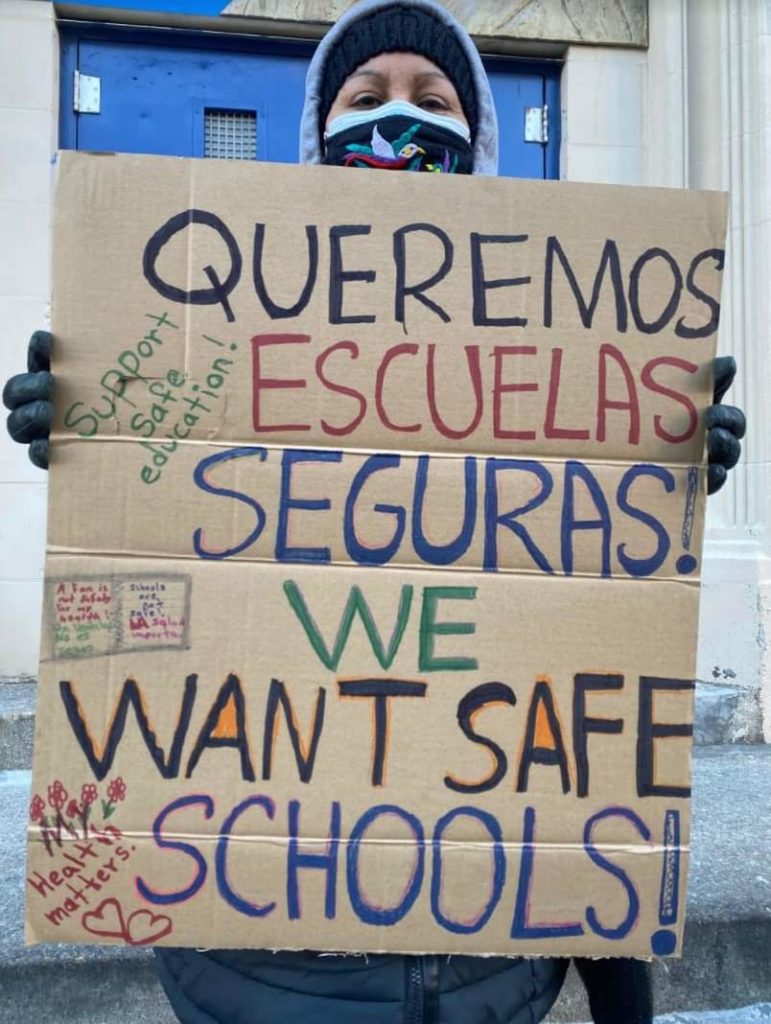 QUEREMOS
ESCUELAS
SEGURAS!
Support
safe
education!
A fan is
not safety
for my
health!
No es
seguro
schools
are
not
safe!
LA salud
importa.
WE
WANT SAFE
SCHOOLS!
My
Health
matters.